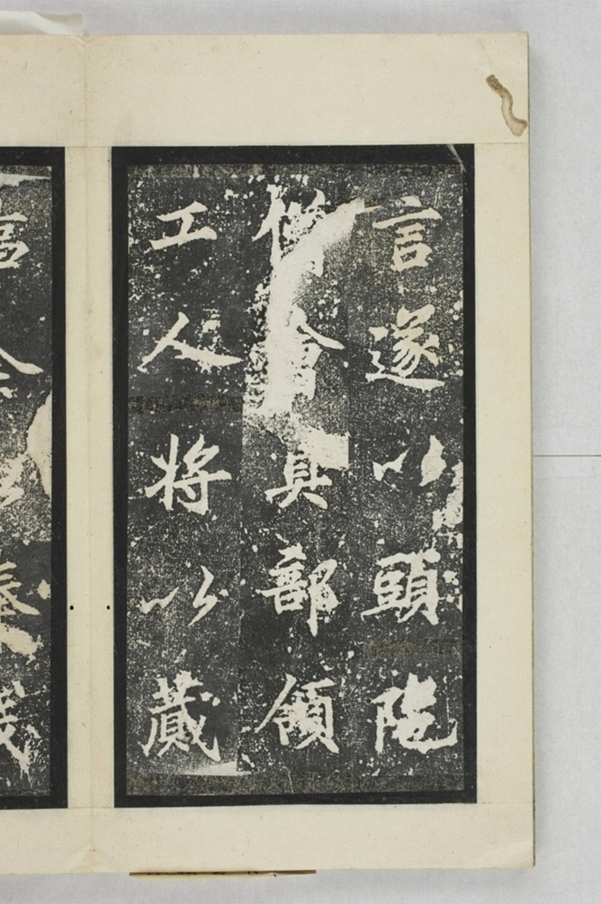 言遂以頭陁
僧會真部領
工人将以藏